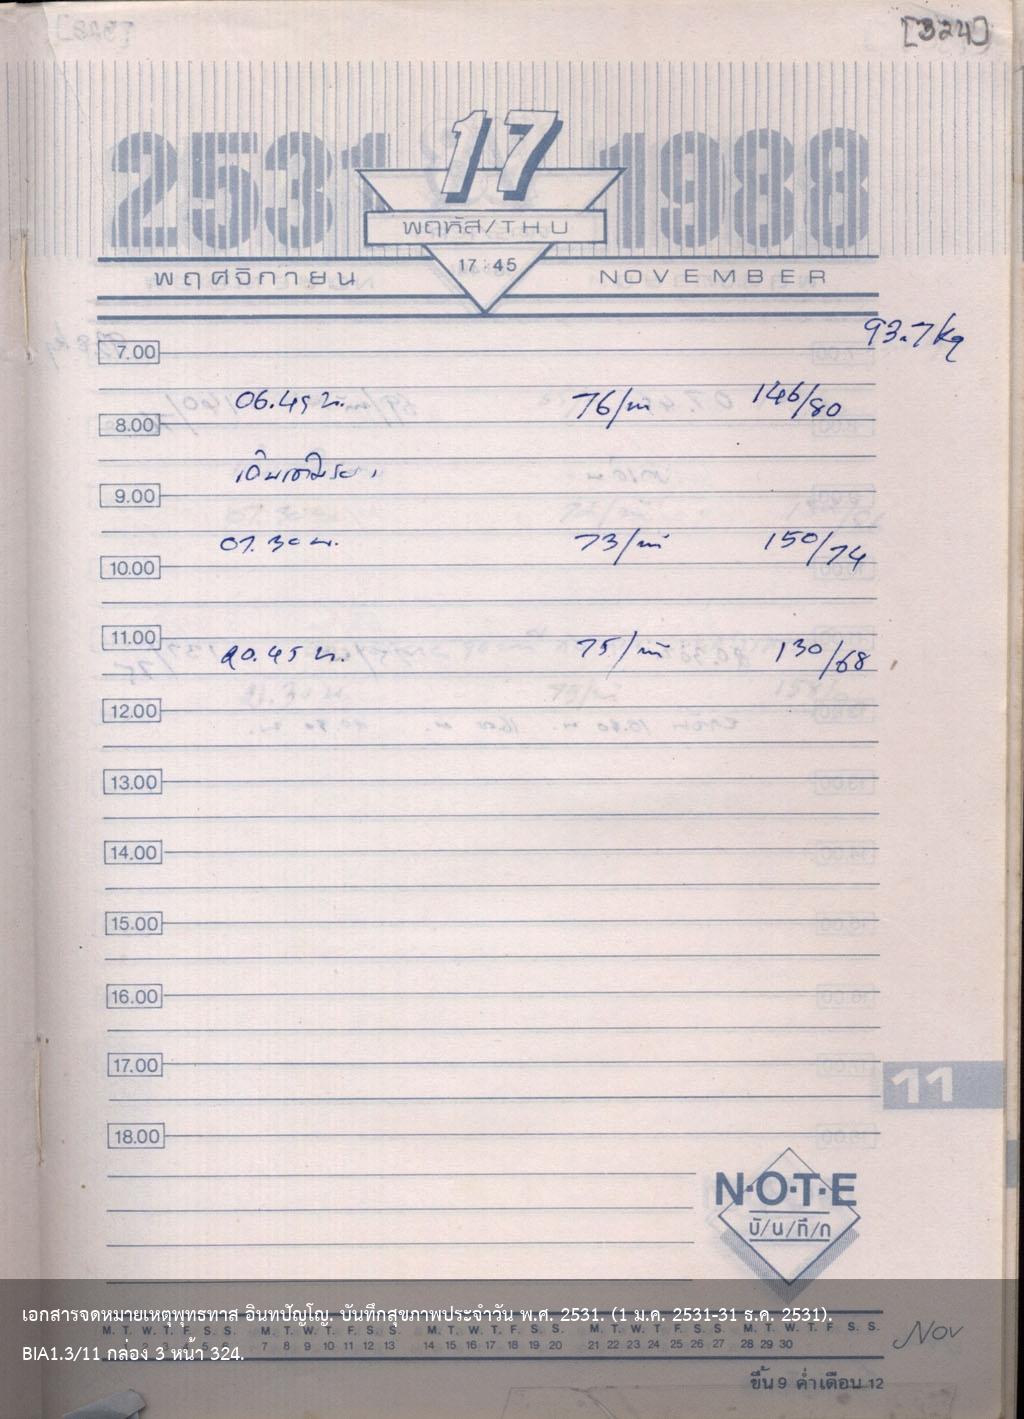 [324]
2531 17 1988
พฤหัส/THU
17:45
พฤศจิกายน NOVEMBER
93.7 kg
7.00
06.45 น. 76/m 146/80
8.00
9.00
07.30 น. 73/m 150/74
10.00
11.00
20.45 น. 75/m 130/68
12.00
13.00
14.00
15.00
16.00
17.00
11
18.00
N·O·T·E
บั/น/ทึ/ก
เอกสารจดหมายเหตุพุทธทาส อินทปัญโญ. บันทึกสุขภาพประจำวัน พ.ศ. 2531. (1 ม.ค. 2531-31 ธ.ค. 2531).
M. T. W. T. F. S. S. M. T. W. T. F. S. S. M. T. W. T. F. S. S. M. T. W. T. F. S. S. M. T. W. T. F. S. S.
7 8 9 10 11 12 13 14 15 16 17 18 19 20 21 22 23 24 25 26 27 28 29 30
Nov
BIA1.3/11 กล่อง 3 หน้า 324.
ขึ้น 9 ค่ำ เดือน 12